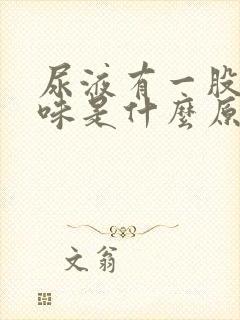 尿液有一股
味是什麼原
文翁